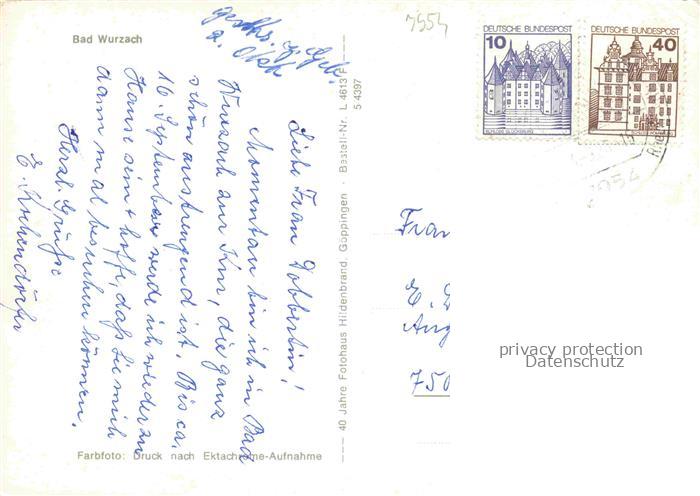 Bad Wurzach
geschr. z. Geb.
z. Obst
Liebe Frau Dobberstin!
Momentan bin ich in Bad
Wurzach zur Kur, die ganz
schön anstrengend ist. Bis ca.
16. September werde ich wieder zu
Hause sein + hoffe, daß Sie mich
dann mal besuchen können.
Herzl. Grüße
E. Kochendörfer
Farbfoto: Druck nach Ektachrome-Aufnahme
40 Jahre Fotohaus Hildenbrand, Göppingen · Bestell-Nr. L 4613 F
5 4397
7954
DEUTSCHE BUNDESPOST
10
SCHLOSS GLÜCKSBURG
DEUTSCHE BUNDESPOST
40
7954
Frau
E. D
Aug
750
privacy protection
Datenschutz